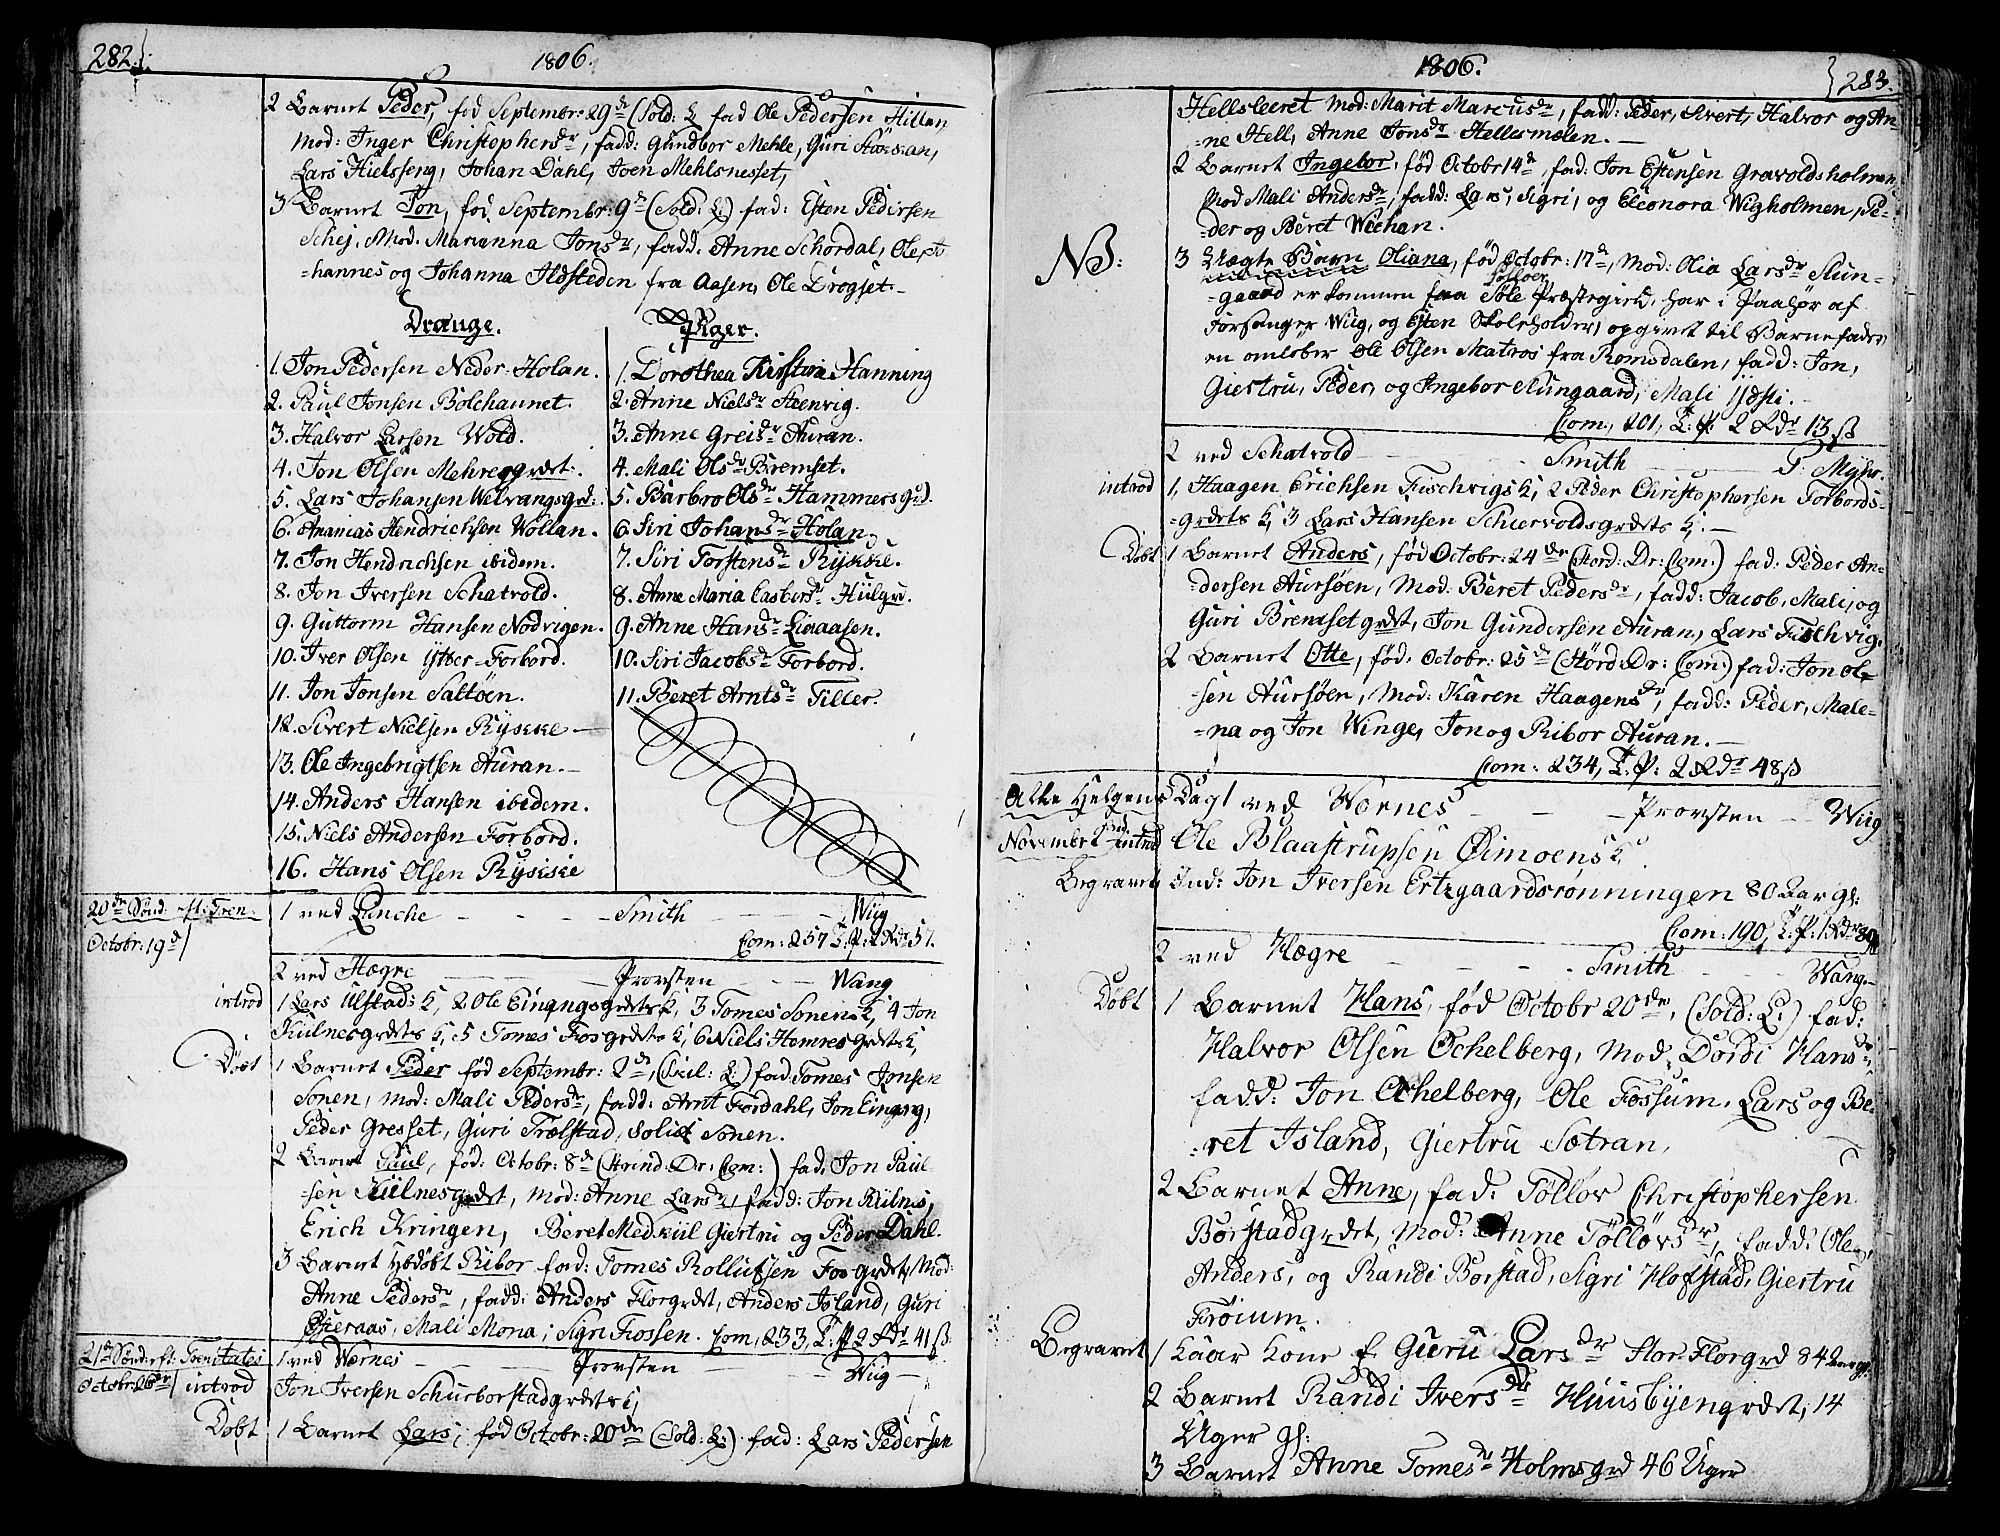 282.
1806.
2 Barnet Peder, fød Septembr: 29de (Sold: L fad Ole Pedersen Hillan
Mod: Inger Christophersdr, fadd: Gundbor Mehle, Guri
Lars Hielsseng, Johan Dahl, Joen Mehlsnesset,
3 Barnet Jon, fød Septembr: 9de (Sold: L:) fad: Esten Pedersen
Schej, Mod. Marianna Jonsdr, fadd: Anne Schördal, Ole, Jo
=hannes og Johanna Ildsteden fra Aasen, Ole Drogset.-
Drænge.
Piger.
1. Jon Pedersen Neder-Holan.
2. Paul Jonsen Bolchaunet.
3. Halvor Larsen Wold.
4. Jon Olsen Mehregrdet.
5. Lars Johansen Welvangsgrd:
6. Ananias Hendrichsen Wollan.
7. Jon Hendrichsen ibidem.
8. Jon Iversen Schatvold.
9. Guttorm Hansen Nodvigen.
10. Iver Olsen Ytter-Forbord.
11. Jon Jonsen Saltöen.
12. Sivert Nielsen Rÿskke
13. Ole Ingebrigtsen Auran.-
14. Anders Hansen ibidem.
15. Niels Andersen Forbord.
16. Hans Olsen Rÿskke
1. Dorothea Kirstina Hanning
2. Anne Nielsdr Steenvig.
3. Anne Greisdr Auran.
4. Mali Olsdr Bremset.
5. Barbro Olsdr Hammersgrd.
6. Siri Johansdr Holan
7. Siri Torstensdr Rÿskke.
8. Anne Maria Casbersdr Hülgrd.
9. Anne Hansdr Livaasen.
10. Siri Jacobsdr Forbord.
11. Beret Arntsdr Tiller.
20de Sönd. eft: Tren.
Octobr: 19de
1 ved Lunche - - - Smith - - - Wiig
Com: 257 T. P: 2 Rdr 57.
2 ved Hægre - - - Provsten - - Wang
introd
1 Lars Ulstad: K, 2 Ole Eingngsgrdets K, 3 Tomes Sonens K, 4 Jon
Külnesgrdets K, 5 Tomes Fosgrdets K, 6 Niels Homresgrdets K,
Döbt
1 Barnet Peder fød Septembr: 2de, (Civil: L:) fad: Tomes Jonsen
Sonen, Mod: Mali Pedersdr, fadd: Arnt Fordahl, Jon Eingng,
Peder Gresset, Guri Trælstad, Solid Sonen.
2 Barnet Paul, fød: Octobr: 8de (Strind: Dr: Com:) fad: Jon Paul
=sen Külnesgrdet, Mod: Anne Larsdr, fadd: Jon Külnes,
Erich Kringen, Beret Medkiil Giertru og Peder Dahl.
3 Barnet Hdöbt Ribor fad: Tomes Rollufsen Fosgrdet, Mod:
Anne Pedersdr, fadd: Anders Florgrdet, Anders Island, Guri
Mali Mona, Sigri Fossen. Com, 233, T. P 2 Rdr 41 ß
21de Sönd: eft: Trinitates
Octobr: 26de
1 ved Wærnes - - - Provsten - - Wiig
introd
Jon Iversen Schurborstadgrdets K,
Döbt
1 Barnet Lars, fød Octobr: 20de (Sold: L:) fad: Lars Pedersen
1806.
283.
Hellsleeret Mod: Marit Marcusdr, fadd: Peder, Sivert, Halvor og An-
=ne Hell, Anne Jonsdr Hellsmælen.-
2 Barnet Ingebor, fød Octobr 14de, fad: Jon Estensen Gravoldsholmen
Mod Mali Andersdr, fadd: Lars, Sigri, og Eleonora Wigholmen, Pe-
=der og Beret Wechan.
NB:
3 Uægte Barn Oliana, fød Octobr: 17de, Mod: Olia Larsdr Slun-
=gaard er kommen fra Söle Præstegield, har i Paahör af
Forsanger Wiig, og Esten Skoleholder, opgivet til Barnefader
en omlöber Ole Olsen Matros fra Romsdalen, fadd: Jon,
Giertru, Peder, og Ingebor Slungaard, Mali
Com, 201, T. P 2 Rdr 13 ß
2 ved Schatvold - - - Smith - - - P: Myhr.
introd
1, Haagen Erichsen Fischvigs K, 2 Peder Christophersen Forbords-
=grdets K, 3 Lars Hansen Schiervoldsgrdets K.-
Döbt
1 Barnet Anders, fød Octobr: 24de (Stord: Dr: Com:) fad: Peder An-
=dersen Aursöen, Mod: Beret Pedersdr, fadd: Jacob, Mali, og
Guri Bremsetgrdet, Jon Gundersen Auran, Lars Fischvig.
2 Barnet Otte, fød: Octobr: 25de (Störd: Dr: Com:) fad: Jon Ol-
=sen Aursöen, Mod: Karen Haagensdr, fadd: Peder, Male-
=na og Jon Winge, Jon og Ribor Auran.-
Com: 234, T. P: 2 Rdr 48 ß
Alle Helgens Dag
1 ved Wærnes - - - Provsten - - Wiig
November 2den introd
Ole Blaastrupsen Öimoens K
Begravet
Ind: Jon Iversen Ertzgaardsrønningen 80 Aar gl:
Com: 190, T. P: 1 Rdr
2 ved Hægre - - - Smith - - Wang.-
Döbt
1 Barnet Hans, fød Octobr 20de, (Sold: L:) fad:
Halvor Olsen Ochelberg, Mod. Dordi Hansdr,
fadd: Jon Ochelberg, Ole Fossum, Lars og Be-
=ret Island, Giertru Sætran,
2 Barnet Anne, fad: Tøllöv Christophersen
Borstadgrdet, Mod: Anne Töllövsdr, fadd: Ole,
Anders, og Randi Borstad, Sigri Hofstad, Giertru
Fröium.
Begravet
1 Kaar Kone E Guru Larsdr Stor-Florgrd 84 Aar gl
2 Barnet Randi Iversdr Huusbÿengrdet, 14
Uger gl:
3 Barnet Anne Tomesdr Holmsgrd 46 Uger